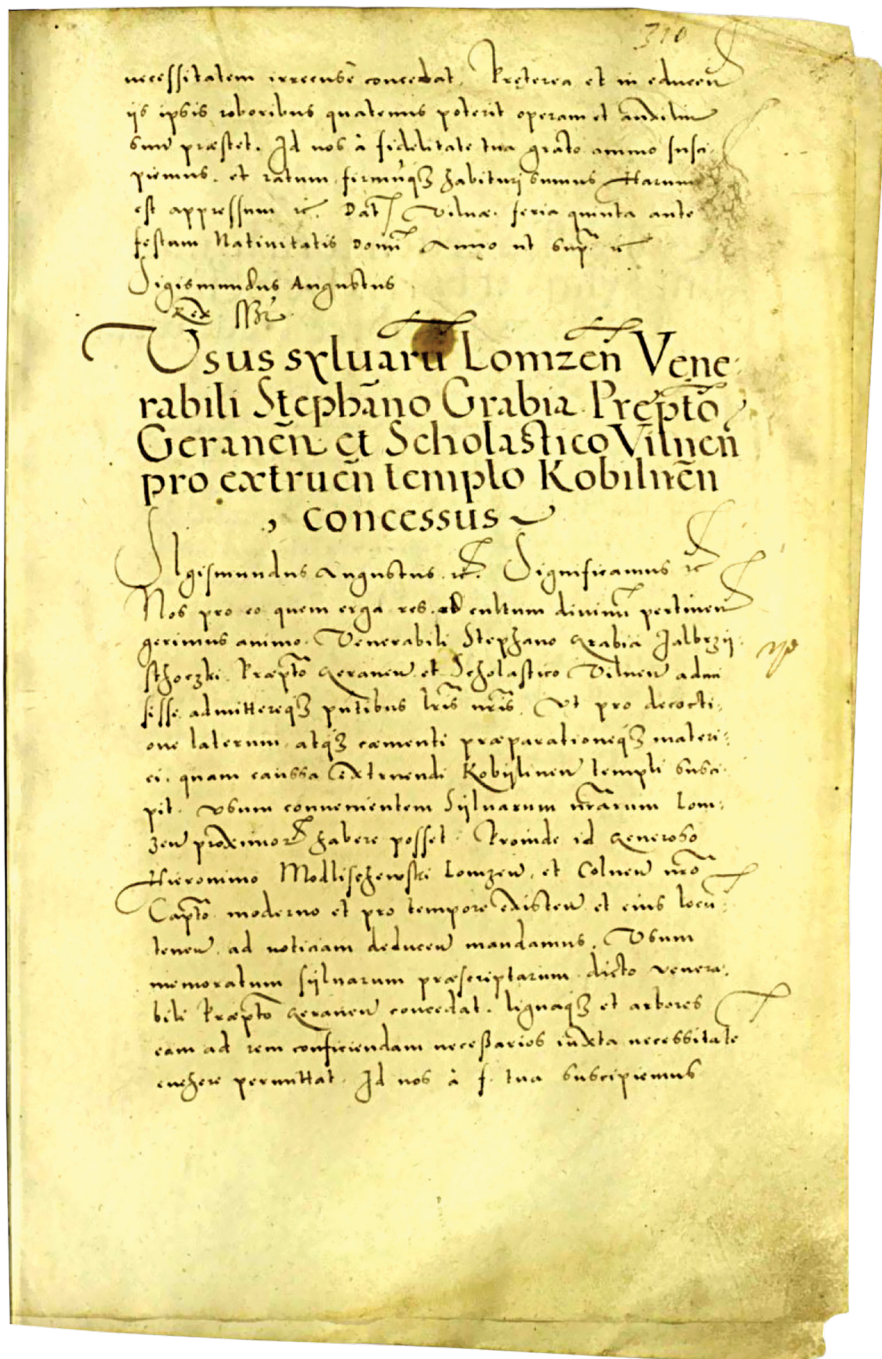 310
necessitatem irrecusē concedat. Pręterea et in educen̄
ijs ipsis roboribus quatenus poterit operam et auxiliū
suū præstet. Id nos à fidelitate tua grato animo susci
piemus. et ratum firmūq3 habituri sumus Harum
est appressum ꝛc̄. Dat̄ Vilnæ. feria quinta ante
festum Nativitatis Domī Anno ut sup̄. ꝛc̄
Sigismundus Augustus
Rex
Usus sylvarū Lomzen̄ Vene:
rabili Stephāno Grabia Prepto͂
Geranēn et Scholastico Vilnen̄
pro extruēn templo Kobilnēn
, concessus ~
Sigismundus Augustus. ꝛc̄. Significamus ꝛc̄
Nos pro eo quem erga res ad cultum divinū pertinen̄
gerimus animo. Venerabili Stephano Grabia Jalbrzÿ:
sthoczki. Præpto͂ Geranen̄ et Scholastico Vilnen̄ admi
sisse. admittereq3 pn̄tibus lr̄is nr̄is. Ut pro decocti:
one laterum. atq3 cæmenti præparationeq3 materi:
ei. quam caussa extruendi Kobÿlinen̄ templi susci
pit. usum convenientem Sÿlvarum nr̄arum Lom:
zen̄ proximor̄ habere posset. Proinde id Generoso
Hieronimo Modlischewski Lomzen̄. et Colnen̄ nr̄o
Capto͂ moderno et pro tempore existen̄ et eius locū:
tenen̄. ad noticiam deducen̄ mandamus. Usum
memoratum sÿlvarum præscriptarum. dicto venera:
bili Præpto͂ Geranen̄ concedat. lignaq3 et arbores
eam ad rem conficiendam necessarios iuxta necessitatē
evehere permittat. Id nos à f. tua suscipiemus